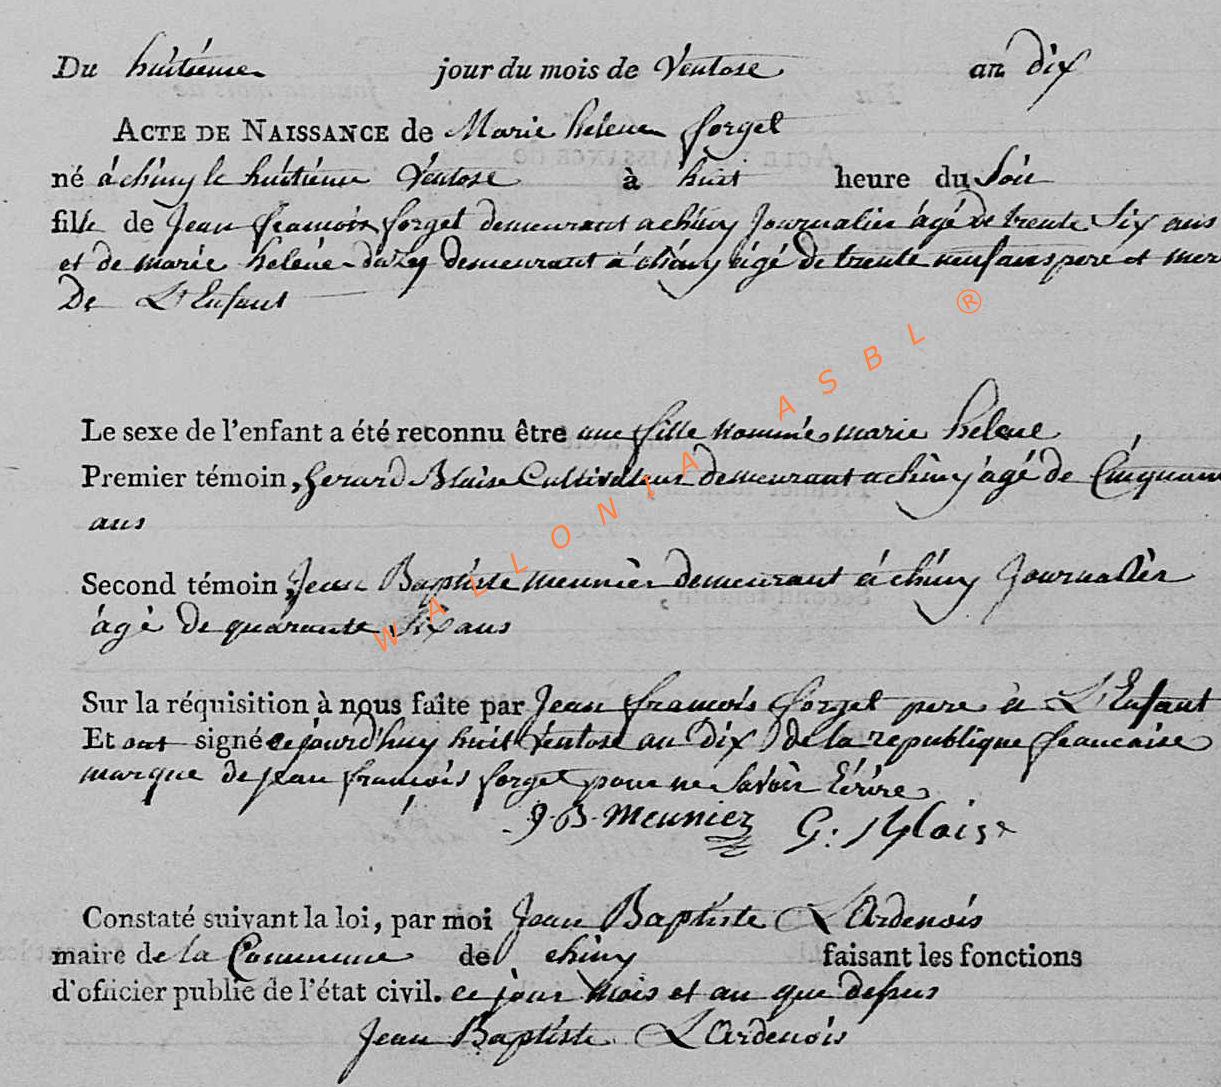 Du huitieme jour du mois de Ventose an dix
ACTE DE NAISSANCE de Marie helene forget
né à chiny le huitieme Ventose à huit heure du Soir
fille de Jean francois forget demeurant a chiny Journalier âgé de trente Six ans
et de marie helene demeurant à chiny âgé de trente neuf ans pere et mer
De L'Enfant
Le sexe de l'enfant a été reconnu être une fille nommée marie helene
Premier témoin, gerard Blaise Cultivateur demeurant a chiny agé de Cinquan
ans
Second témoin, Jean Baptiste meunier demeurant à chiny Journalier
âgé de quarante Six ans
Sur la réquisition à nous faite par Jean francois forget pere à L'Enfant
Et ont signé cejourd'huy huit Ventose an Dix de la republique francaise
marque de jean francois forget pour ne Savoir Ecrire
J-B-Meunier G: Blaise
Constaté suivant la loi, par moi Jean Baptiste L'Ardenois
maire de la Commune de chiny faisant les fonctions
d'officier public de l'état civil. ce jour mois et an que dessus
Jean Baptiste L'Ardenois
WALLONIA ASBL ®